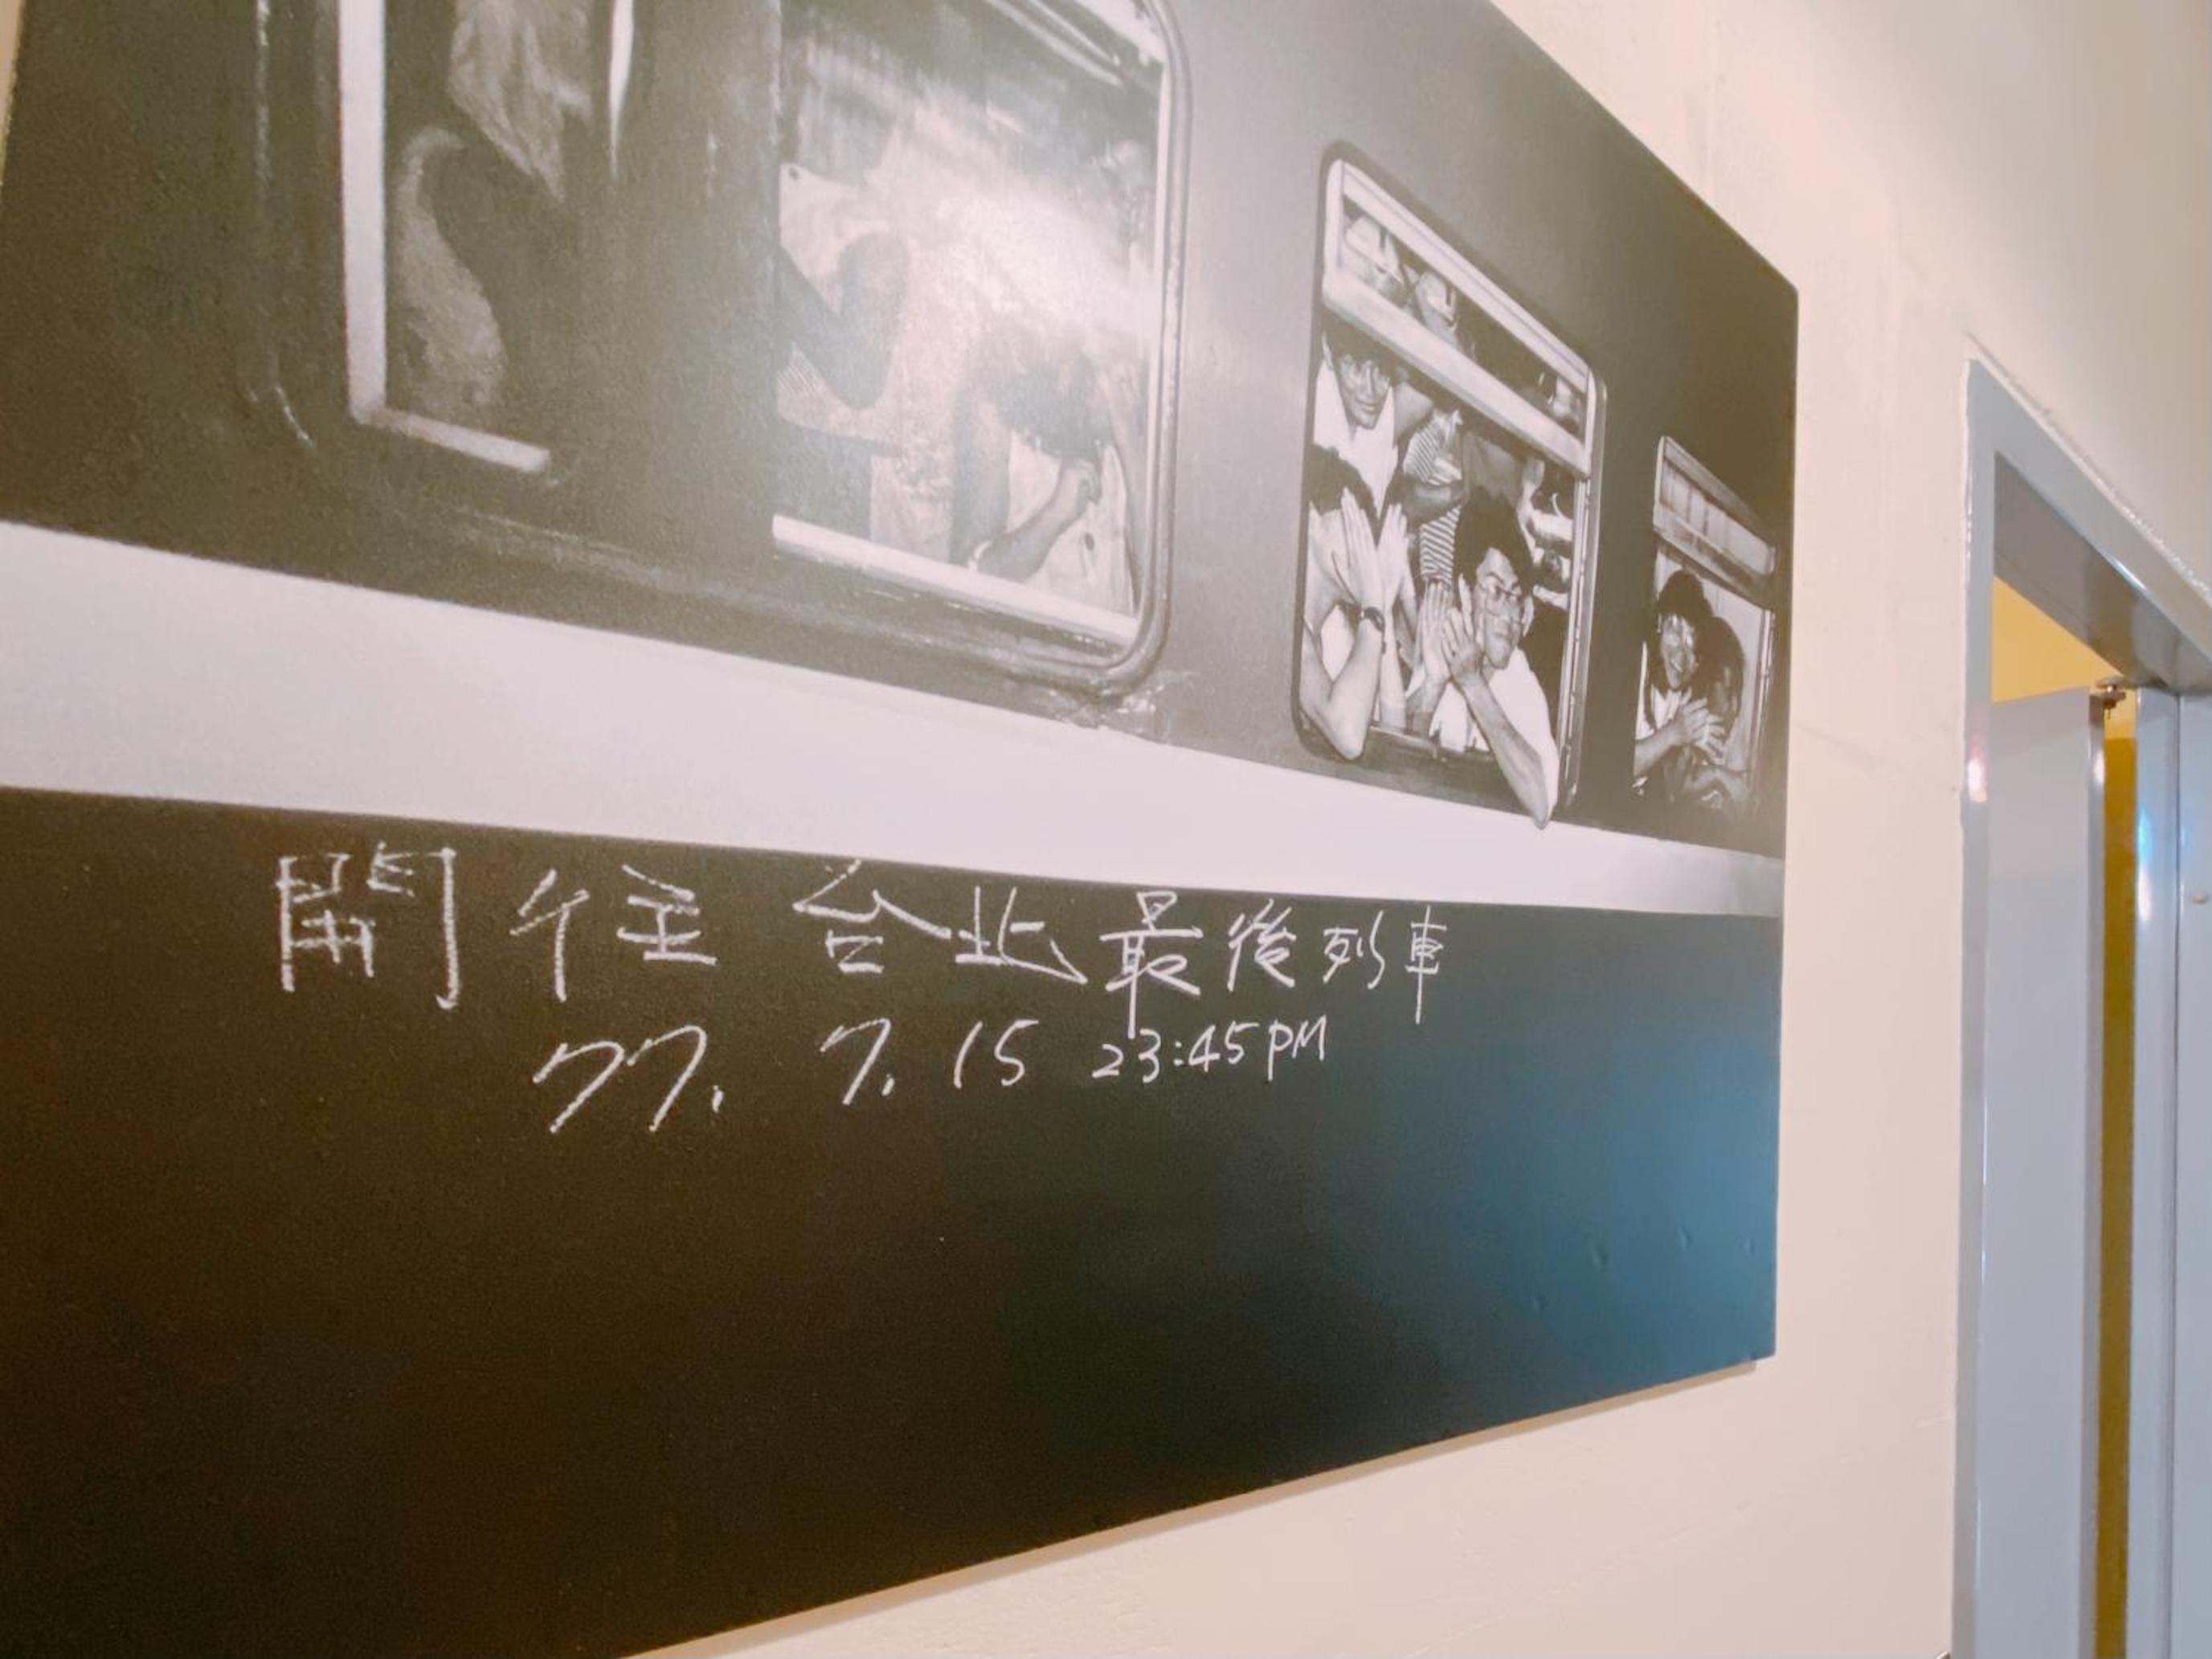 開往台北最後列車
77. 7. 15 23:45PM